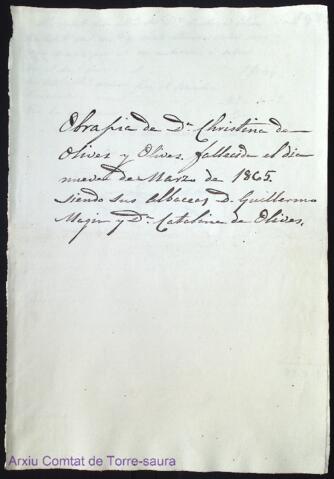 Obra pia de Dª Christina de
Olives y Olives, fallecida el dia
nueve de Marzo de 1865.
siendo sus albaceas D. Guillermo
Magin y Dª Catalina de Olives.
Arxiu Comtat de Torre-saura